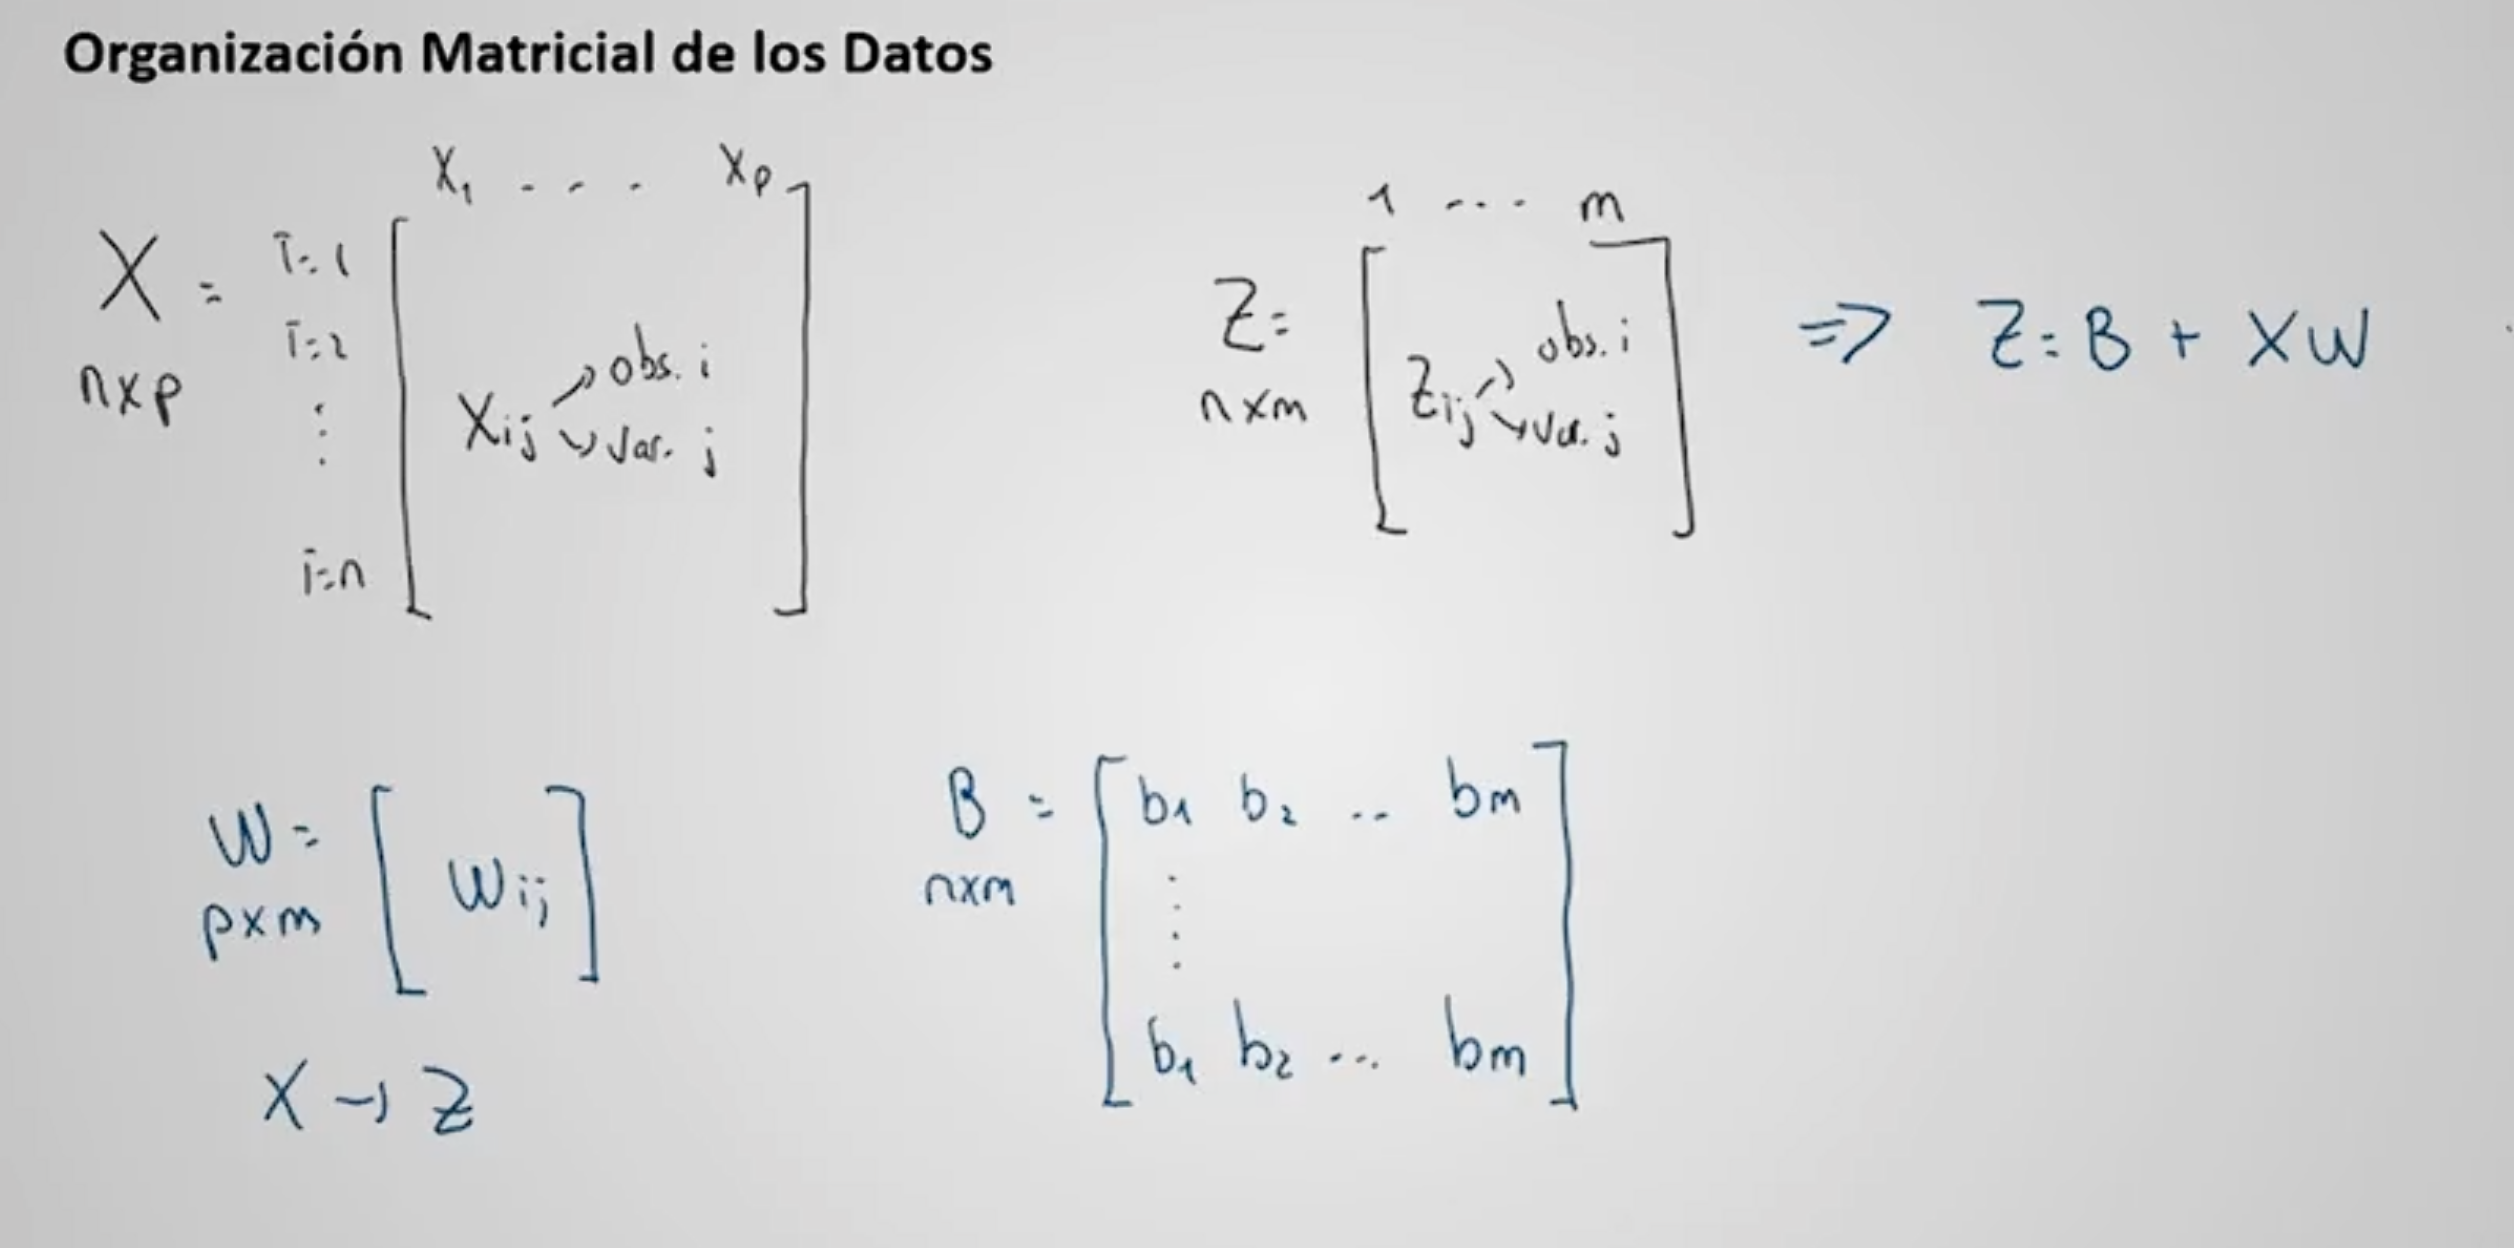 Organización Matricial de los Datos
X1 . . . Xp
X = i=1
nxp i=2
⋮
i=n
Xij → obs. i
→ var. j
1 ... m
Z=
nxm
Zij → obs. i
→ var. j
=> Z = B + XW
W =
pxm
[ Wij ]
X → Z
B =
nxm
b1 b2 .. bm
⋮
b1 b2 ... bm